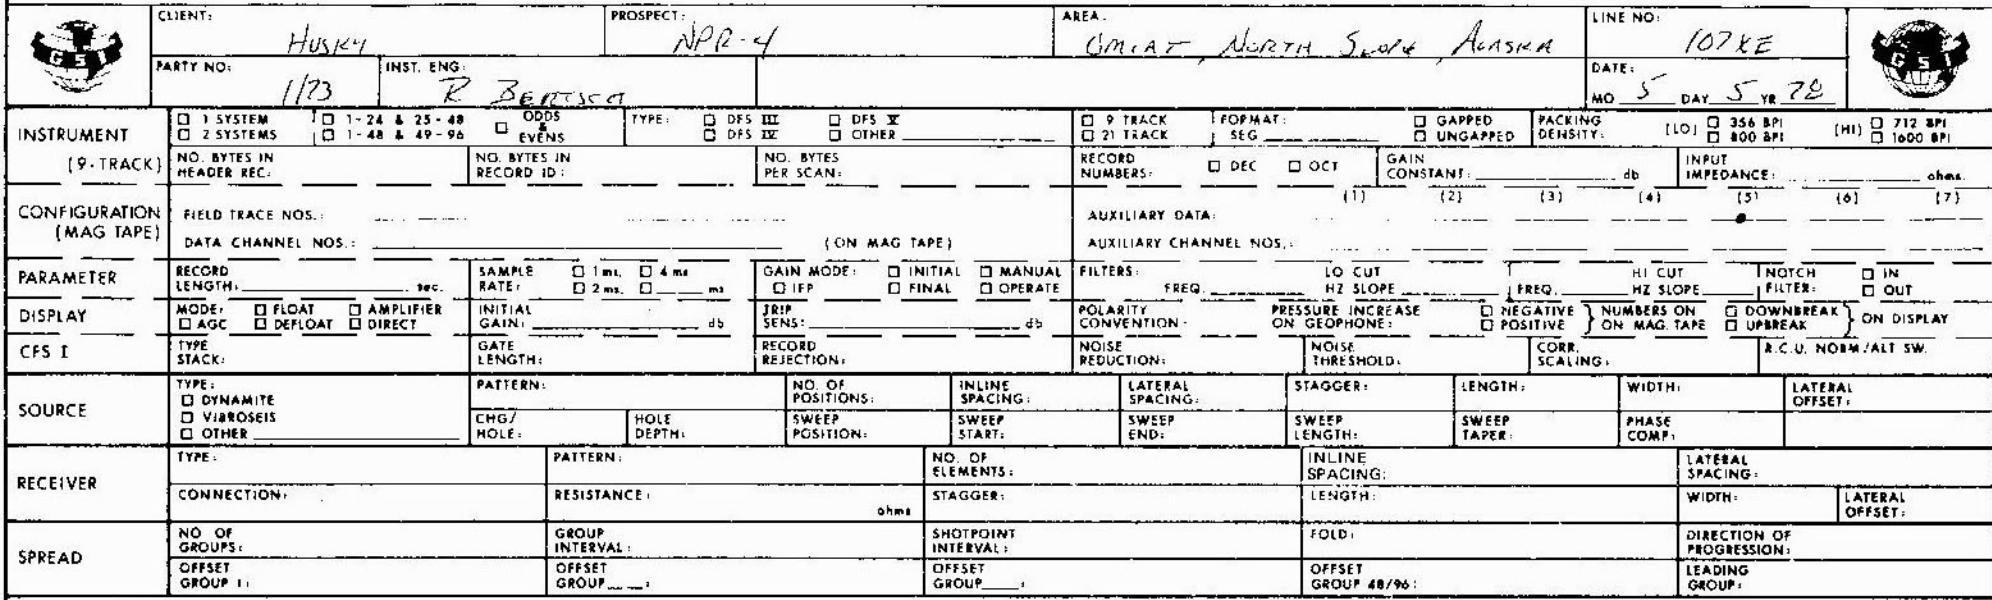 CLIENT: HUSKY PROSPECT: NPR-4 AREA. UMIAT, NORTH SLOPE, ALASKA LINE NO: 107XE
GSI GSI
PARTY NO: 1/73 INST. ENG: R BERTSCH DATE: MO 5 DAY 5 YR 78
INSTRUMENT (9-TRACK) □ 1 SYSTEM □ 1-24 & 25-48 □ ODDS & EVENS TYPE: □ DFS III □ DFS V □ 9 TRACK FORMAT: □ GAPPED PACKING DENSITY: (LO) □ 356 BPI (HI) □ 712 BPI
□ 2 SYSTEMS □ 1-48 & 49-96 □ DFS IV □ OTHER □ 21 TRACK SEG □ UNGAPPED □ 800 BPI □ 1600 BPI
NO. BYTES IN HEADER REC: NO. BYTES IN RECORD ID: NO. BYTES PER SCAN: RECORD NUMBERS: □ DEC □ OCT GAIN CONSTANT: db INPUT IMPEDANCE: ohms.
CONFIGURATION (MAG TAPE) FIELD TRACE NOS.: AUXILIARY DATA: (1) (2) (3) (4) (5) (6) (7)
DATA CHANNEL NOS.: (ON MAG TAPE) AUXILIARY CHANNEL NOS.:
PARAMETER RECORD LENGTH: sec. SAMPLE RATE: □ 1 ms. □ 4 ms □ 2 ms. □ ms GAIN MODE: □ INITIAL □ MANUAL □ IFP □ FINAL □ OPERATE FILTERS: FREQ. LO CUT HZ SLOPE FREQ. HI CUT HZ SLOPE NOTCH FILTER: □ IN □ OUT
DISPLAY MODE: □ FLOAT □ AMPLIFIER □ AGC □ DEFLOAT □ DIRECT INITIAL GAIN: db TRIP SENS: db POLARITY CONVENTION: PRESSURE INCREASE ON GEOPHONE: □ NEGATIVE □ POSITIVE } NUMBERS ON ON MAG. TAPE □ DOWNBREAK □ UPBREAK } ON DISPLAY
CFS I TYPE STACK: GATE LENGTH: RECORD REJECTION: NOISE REDUCTION: NOISE THRESHOLD: CORR. SCALING: R.C.U. NORM/ALT SW.
SOURCE TYPE: □ DYNAMITE □ VIBROSEIS □ OTHER PATTERN: NO. OF POSITIONS: INLINE SPACING: LATERAL SPACING: STAGGER: LENGTH: WIDTH: LATERAL OFFSET:
CHG/HOLE: HOLE DEPTH: SWEEP POSITION: SWEEP START: SWEEP END: SWEEP LENGTH: SWEEP TAPER: PHASE COMP:
RECEIVER TYPE: PATTERN: NO. OF ELEMENTS: INLINE SPACING: LATERAL SPACING:
CONNECTION: RESISTANCE: ohms STAGGER: LENGTH: WIDTH: LATERAL OFFSET:
SPREAD NO OF GROUPS: GROUP INTERVAL: SHOTPOINT INTERVAL: FOLD: DIRECTION OF PROGRESSION:
OFFSET GROUP 1: OFFSET GROUP : OFFSET GROUP : OFFSET GROUP 48/96: LEADING GROUP: